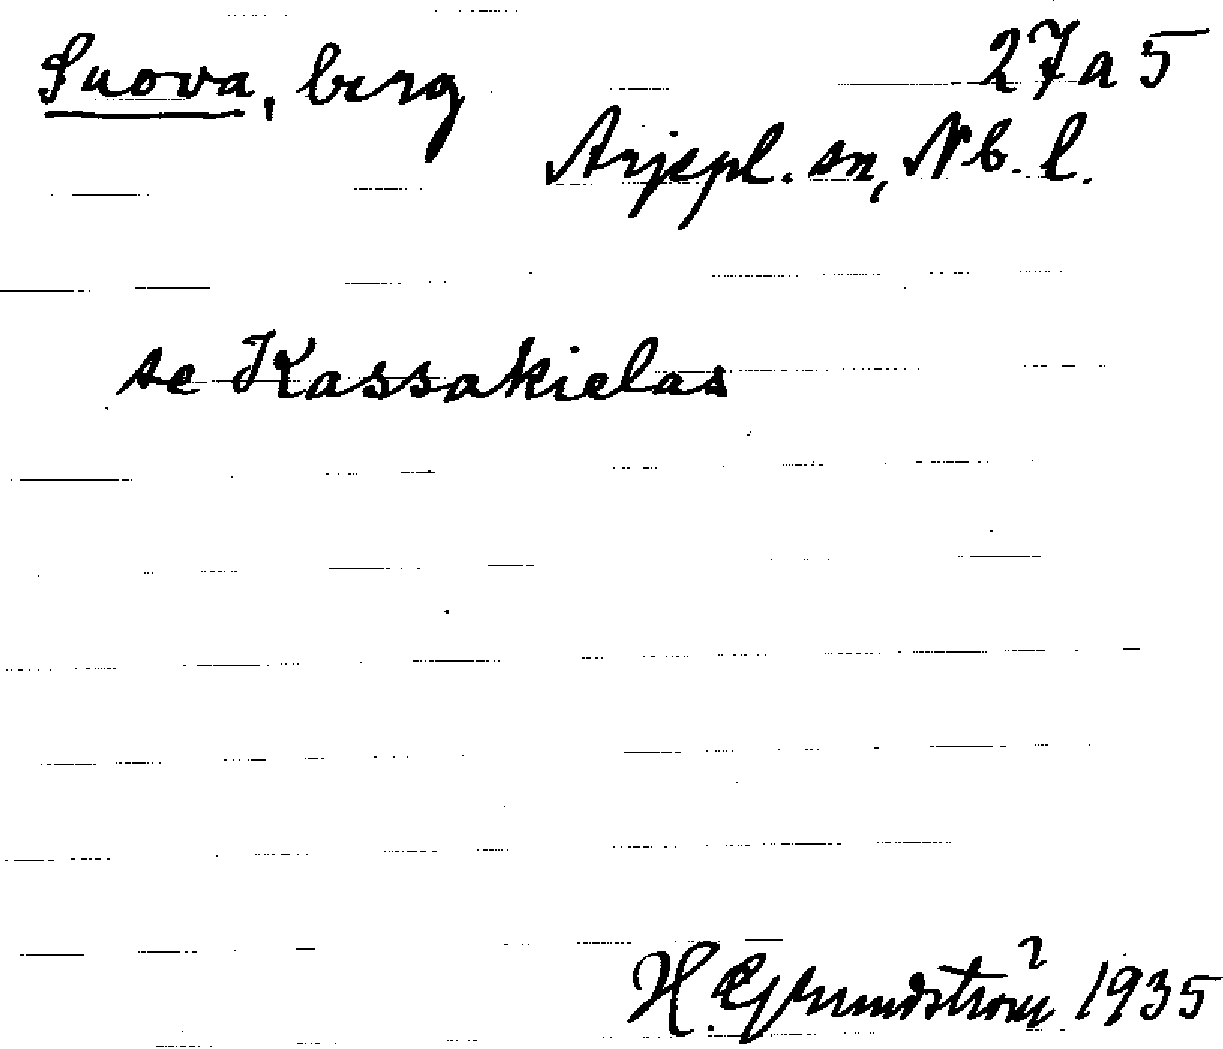 Suova, berg 27a5
Arjepl. sn, Nb. l.
se Kassakielas
H. Grundström 1935